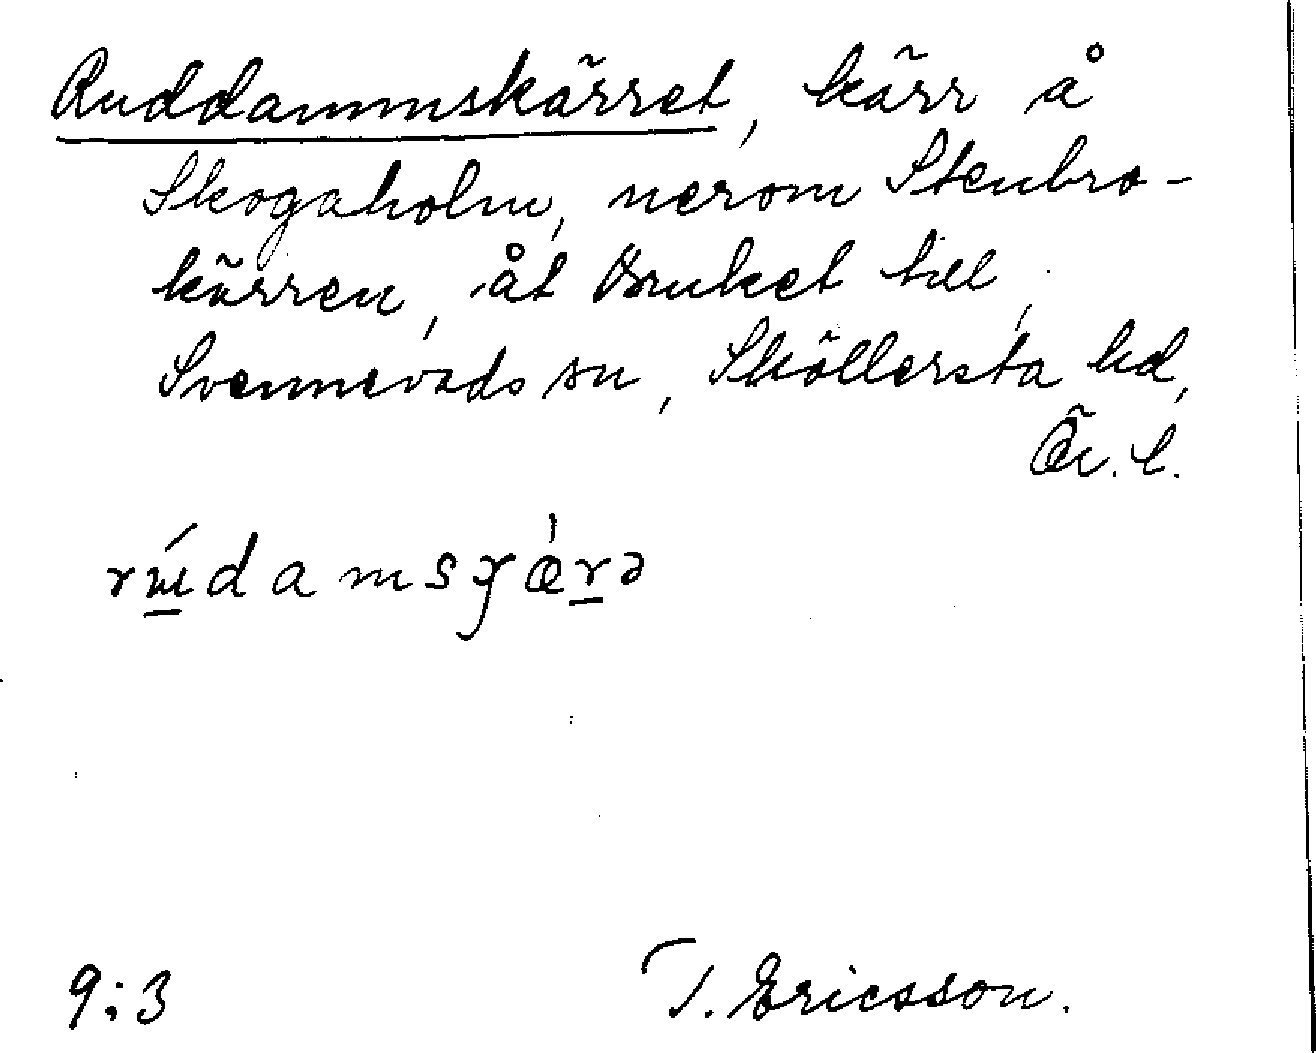 Ruddammskärret, kärr å
Skogaholm, nerom Stenbro-
kärren, åt Bruket till,
Svennevads sn, Sköllersta hd,
Ör. l.
9:3
T. Ericsson.